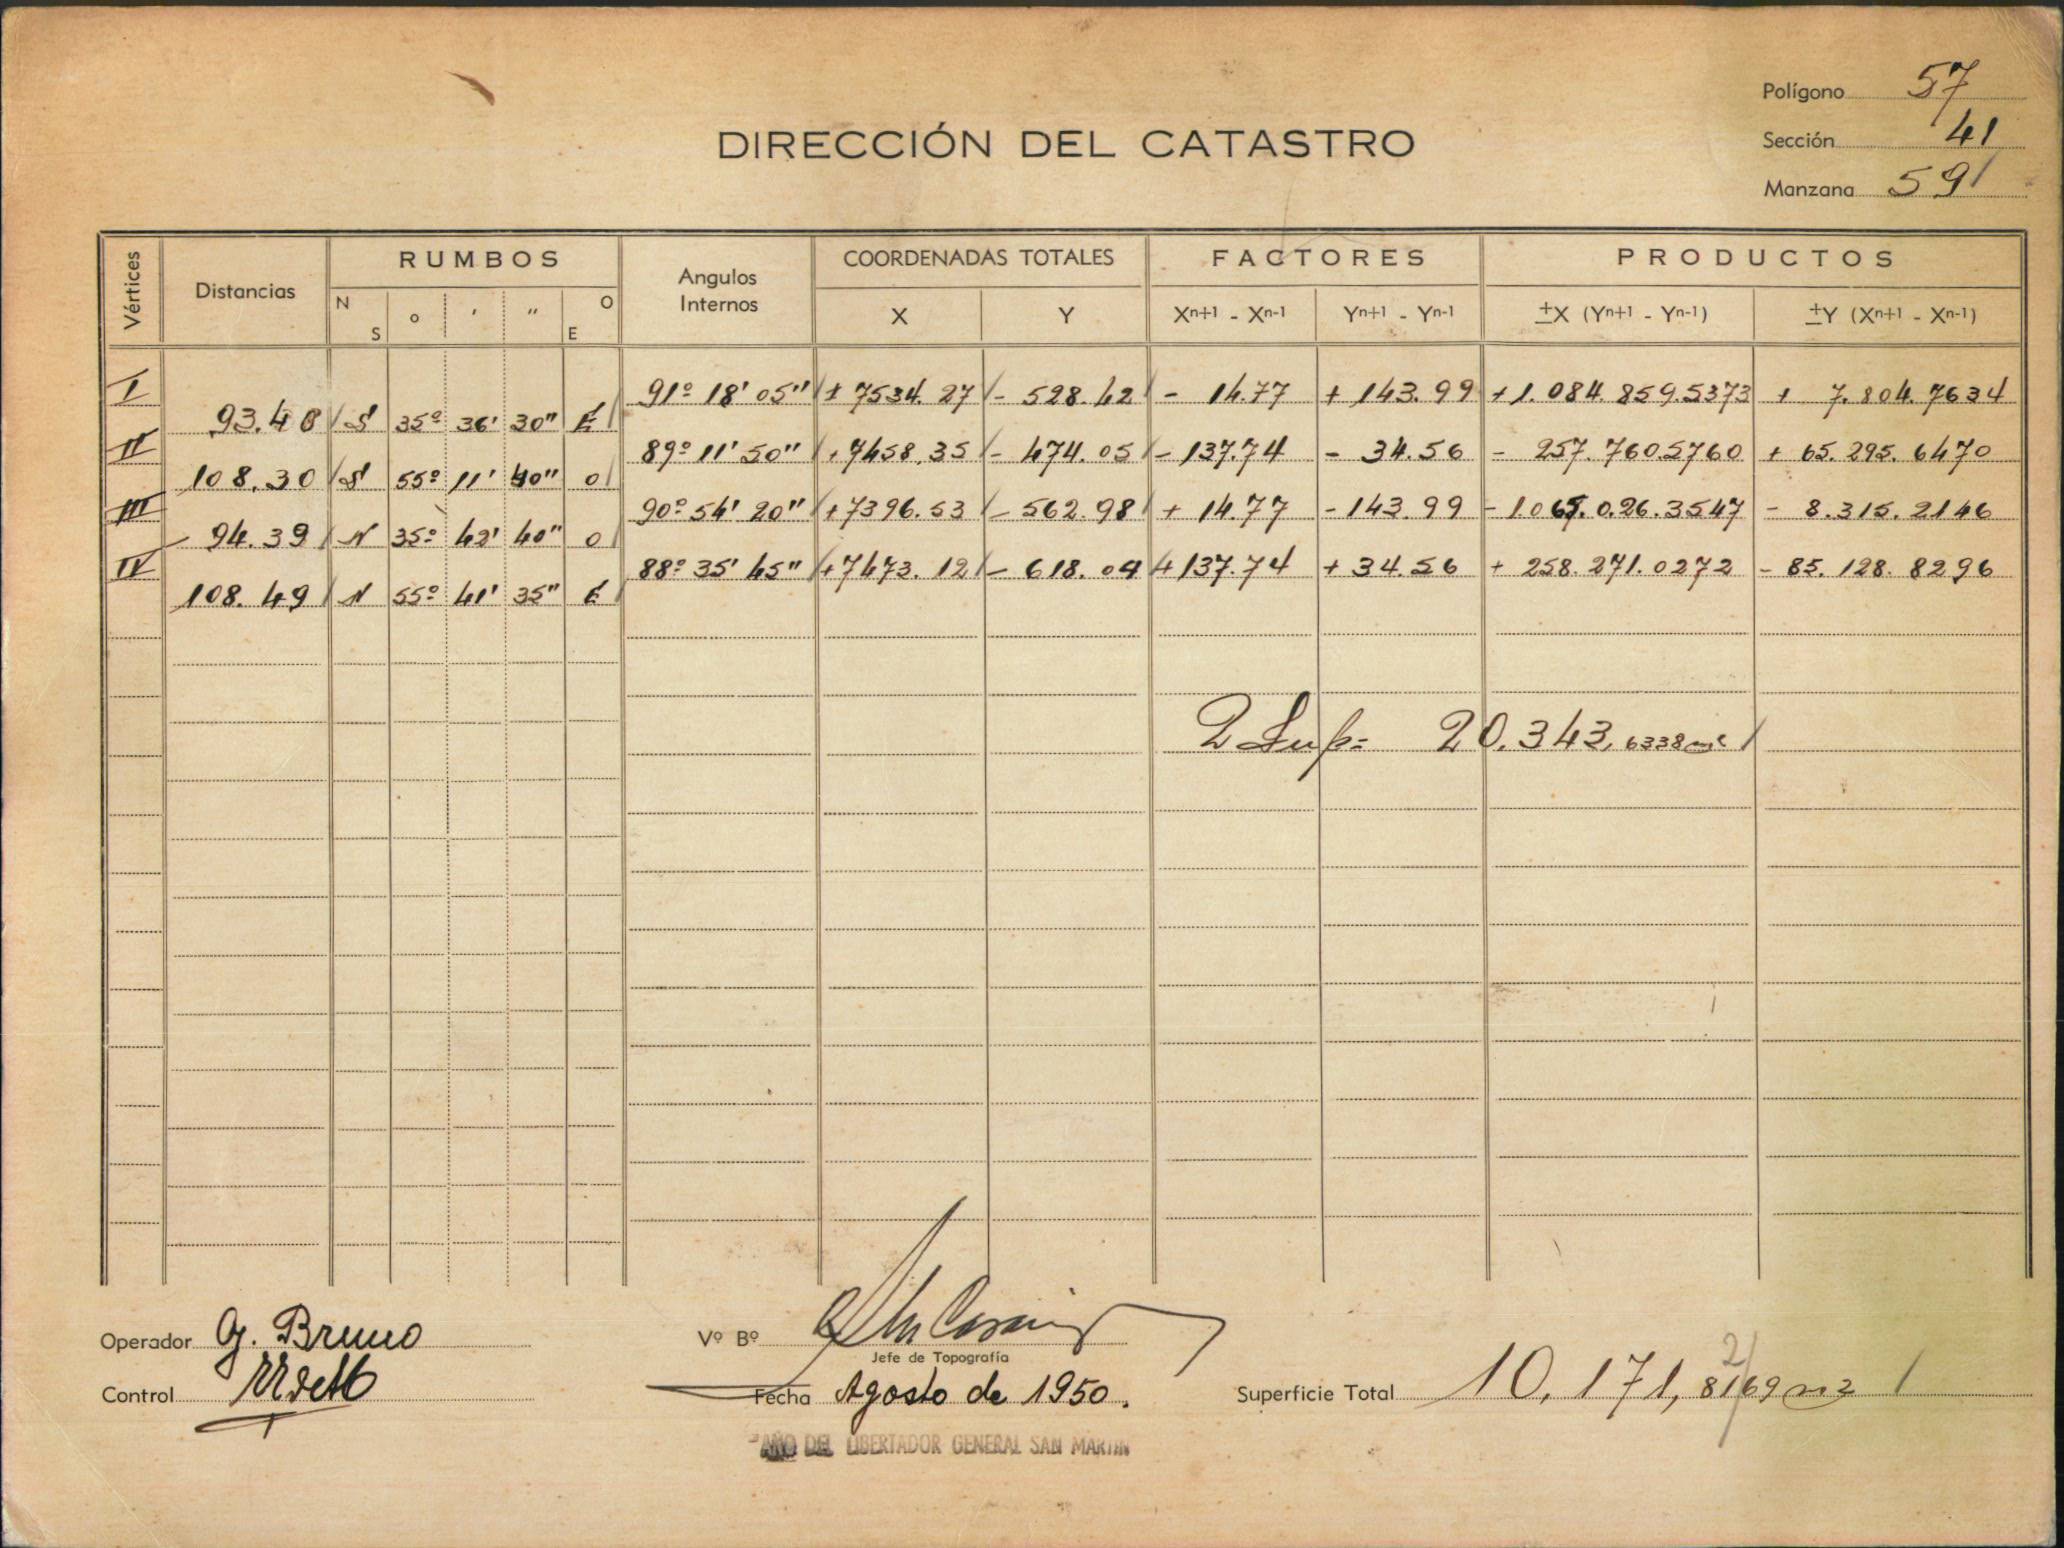 Polígono 57
DIRECCIÓN DEL CATASTRO
Sección 41
Manzana 59
Vértices Distancias RUMBOS Angulos Internos COORDENADAS TOTALES FACTORES PRODUCTOS
N S º ' " O E X Y Xⁿ⁺¹ - Xⁿ⁻¹ Yⁿ⁺¹ - Yⁿ⁻¹ ±X (Yⁿ⁺¹ - Yⁿ⁻¹) ±Y (Xⁿ⁺¹ - Xⁿ⁻¹)
I 91º 18' 05" + 7534.27 - 528.42 - 14.77 + 143.99 + 1.084.859.5373 + 7.804.7634
93.40 S 35º 36' 30" E
II 89º 11' 50" + 7458.35 - 474.05 - 137.74 - 34.56 - 257.760.5760 + 65.295.6470
108.30 S 55º 11' 40" O
III 90º 54' 20" + 7396.53 - 562.98 + 14.77 - 143.99 - 1065.026.3547 - 8.315.2146
94.39 N 35º 42' 40" O
IV 88º 35' 45" + 7473.12 - 618.04 + 137.74 + 34.56 + 258.271.0272 - 85.128.8296
108.49 N 55º 41' 35" E
2 Sup = 20.343,6338 m²
Operador G. Bruno
Vº Bº
Jefe de Topografía
Control
Fecha Agosto de 1950.
Superficie Total 10.171,8169 m2
"AÑO DEL LIBERTADOR GENERAL SAN MARTIN